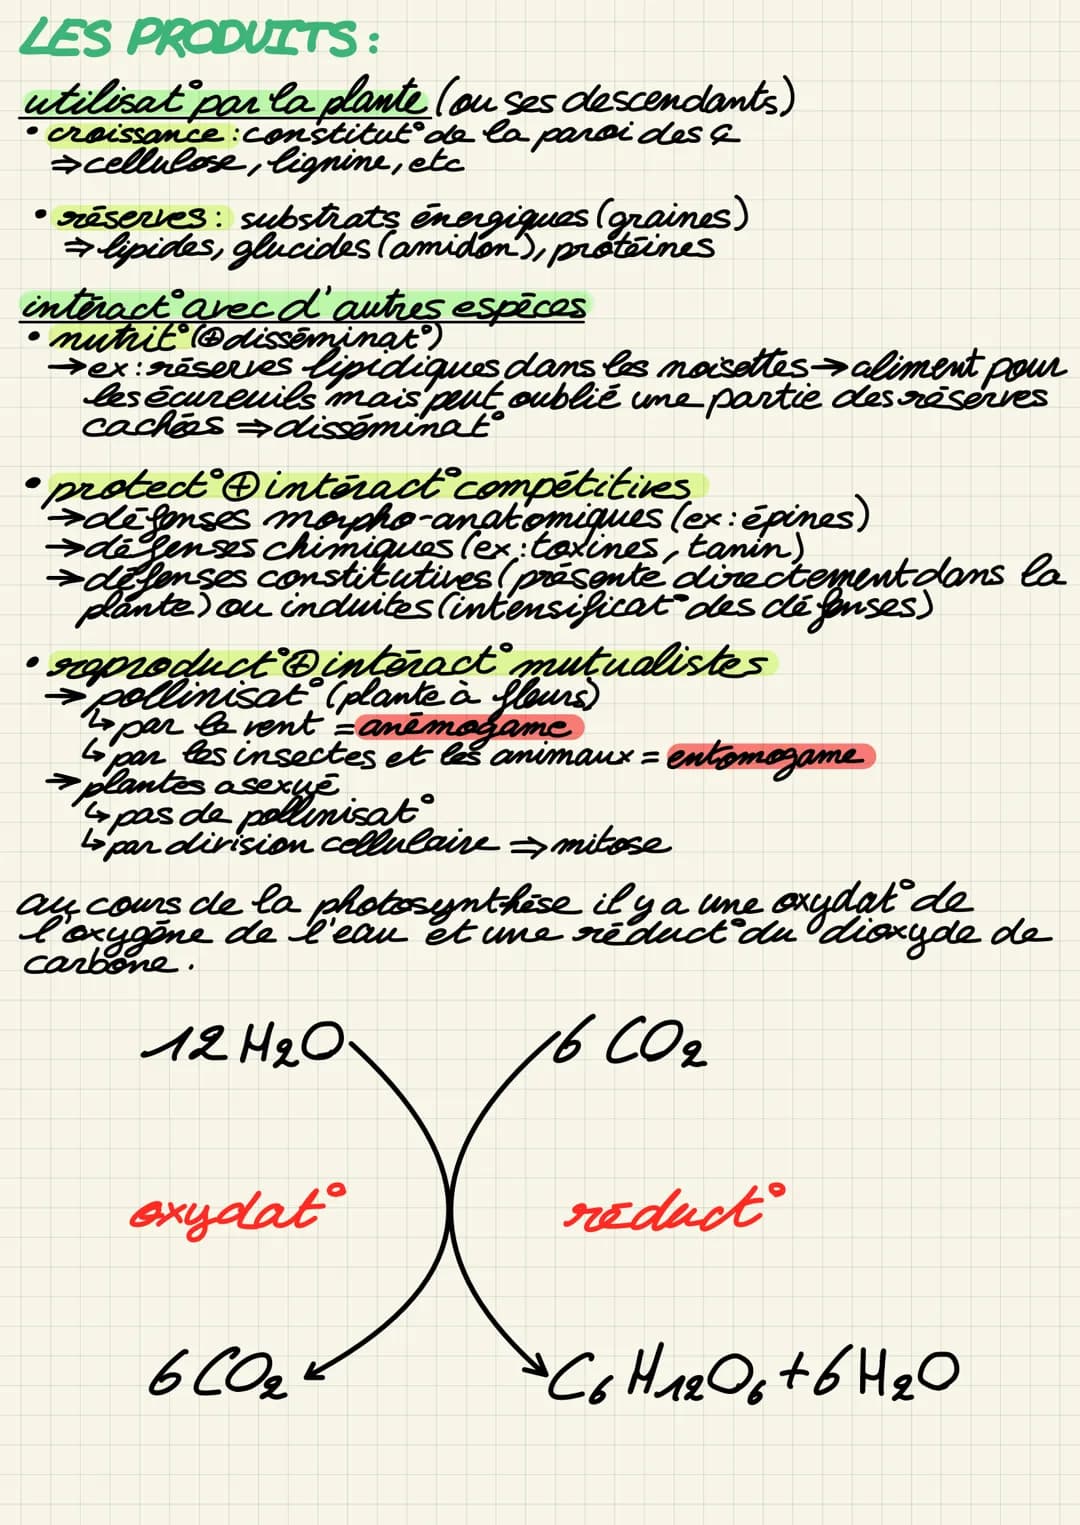 LES PRODUITS :
utilisat° par la plante (ou ses descendants)
• croissance : constitut° de la paroi des
⇒ cellulose, lignine, etc
• réserves : substrats énergiques (graines)
⇒ lipides, glucides (amidon), protéines
intéract° avec d'autres espèces
• nutrit° (⊕ disséminat°)
→ ex : réserves lipidiques dans les noisettes → aliment pour
les écureuils mais peut oublié une partie des réserves
cachées ⇒ disséminat°
• protect° ⊕ intéract° compétitives
→ défenses morpho-anatomiques (ex : épines)
→ défenses chimiques (ex : toxines, tanin)
→ défenses constitutives (présente directement dans la
plante) ou induites (intensificat° des défenses)
• reproduct° ⊕ intéract° mutualistes
→ pollinisat° (plante à fleurs)
↳ par le vent = anémogame
↳ par les insectes et les animaux = entomogame
→ plantes asexué
↳ pas de pollinisat°
↳ par division cellulaire ⇒ mitose
au cours de la photosynthèse il y a une oxydat° de
l'oxygène de l'eau et une réduct° du dioxyde de
carbone.
12 H₂O 6 CO₂
oxydat° réduct°
6 CO₂ C₆H₁₂O₆ + 6 H₂O